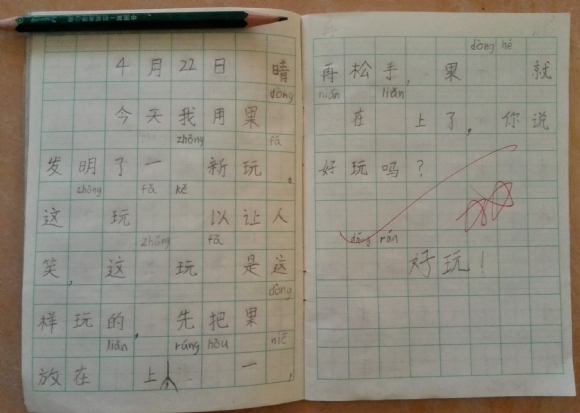 4月22日 晴
dòng
今天我用果
zhǒng fǎ
发明了一 新玩。
zhǒng fǎ kě
这 玩 以让人
zhǒng fǎ
笑，这 玩 是这
dòng
样玩的，先把果
liǎn ráng hòu niē
放在 上 一，
dòng hé
再松手，果 就
nián liǎn
在 上了，你说
好玩吗？
dāng rán
好玩！